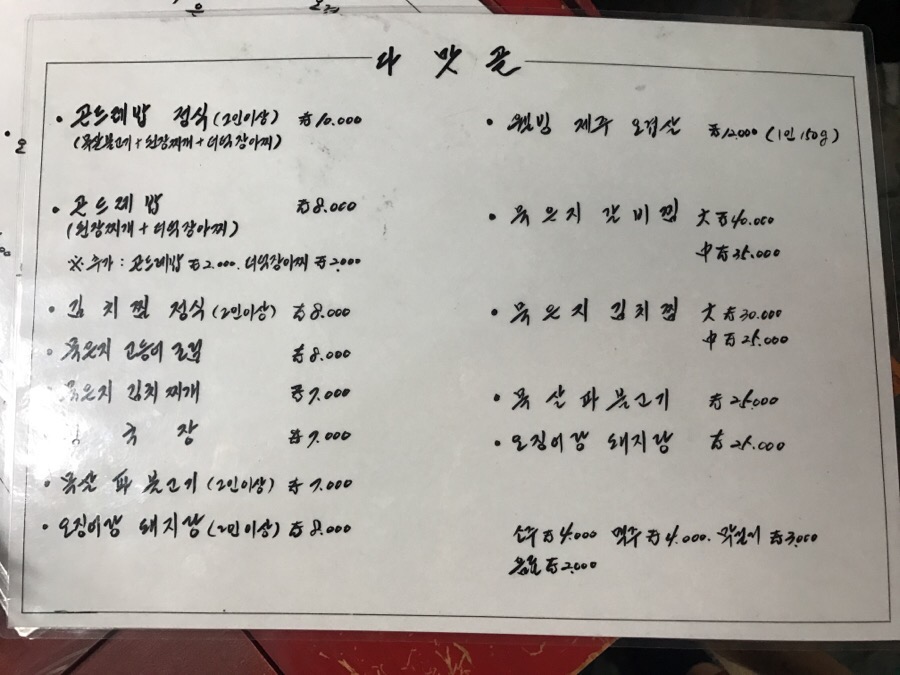 다 맛 골
• 곤드레밥 정식 (2인이상) ₩10.000
(목살불고기 + 된장찌개 + 더덕장아찌)
• 곤드레밥 ₩8.000
(된장찌개 + 더덕장아찌)
※ 추가 : 곤드레밥 ₩2.000. 더덕장아찌 ₩2.000
• 김치찜 정식 (2인이상) ₩8.000
• 묵은지 고등어조림 ₩8.000
• 묵은지 김치찌개 ₩7.000
국장 ₩7.000
• 목살 파 불고기 (2인이상) ₩7.000
• 오징어랑 돼지랑 (2인이상) ₩8.000
• 웰빙 제주 오겹살 ₩12.000 (1인 150g)
• 묵은지 갈비찜 大 ₩40.000
中 ₩35.000
• 묵은지 김치찜 大 ₩30.000
中 ₩25.000
• 목살파불고기 ₩25.000
• 오징어랑 돼지랑 ₩25.000
소주 ₩4.000 맥주 ₩4.000. 막걸리 ₩3.000
음료 ₩2.000